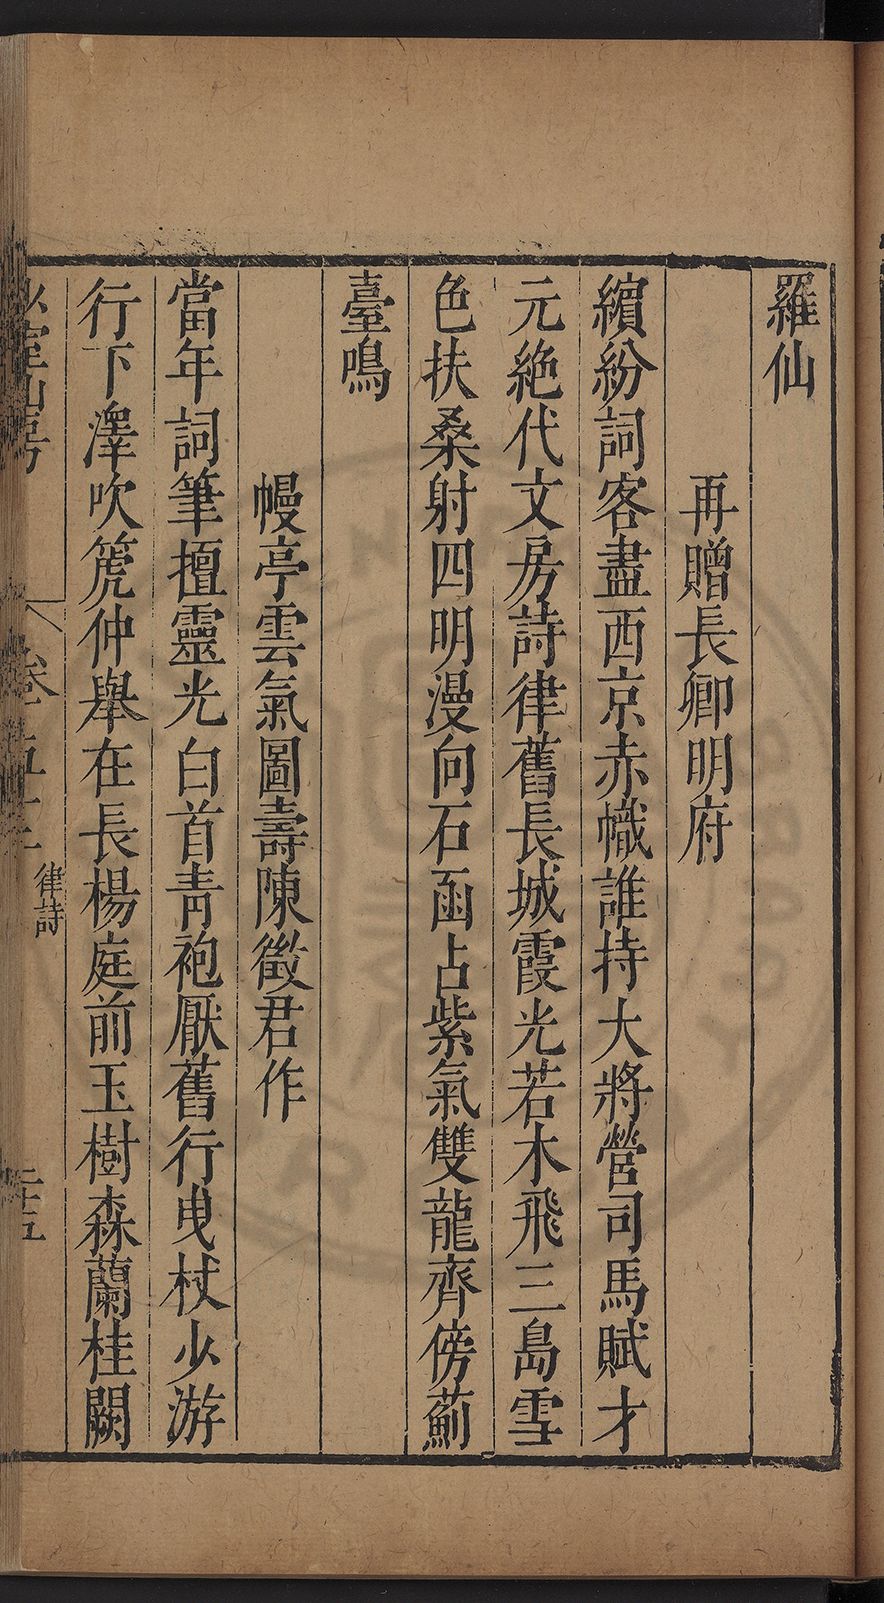 羅仙
再贈長卿明府
繽紛詞客盡西京赤幟誰持大將營司馬賦才
元絶代文房詩律舊長城霞光若木飛三島雪
色扶桑射四明漫向石函占紫氣雙龍齊傍薊
臺鳴
幔亭雲氣圖壽陳徵君作
當年詞筆擅靈光白首青袍厭舊行曳杖少游
行下澤吹篪仲舉在長楊庭前玉樹森蘭桂闕
律詩